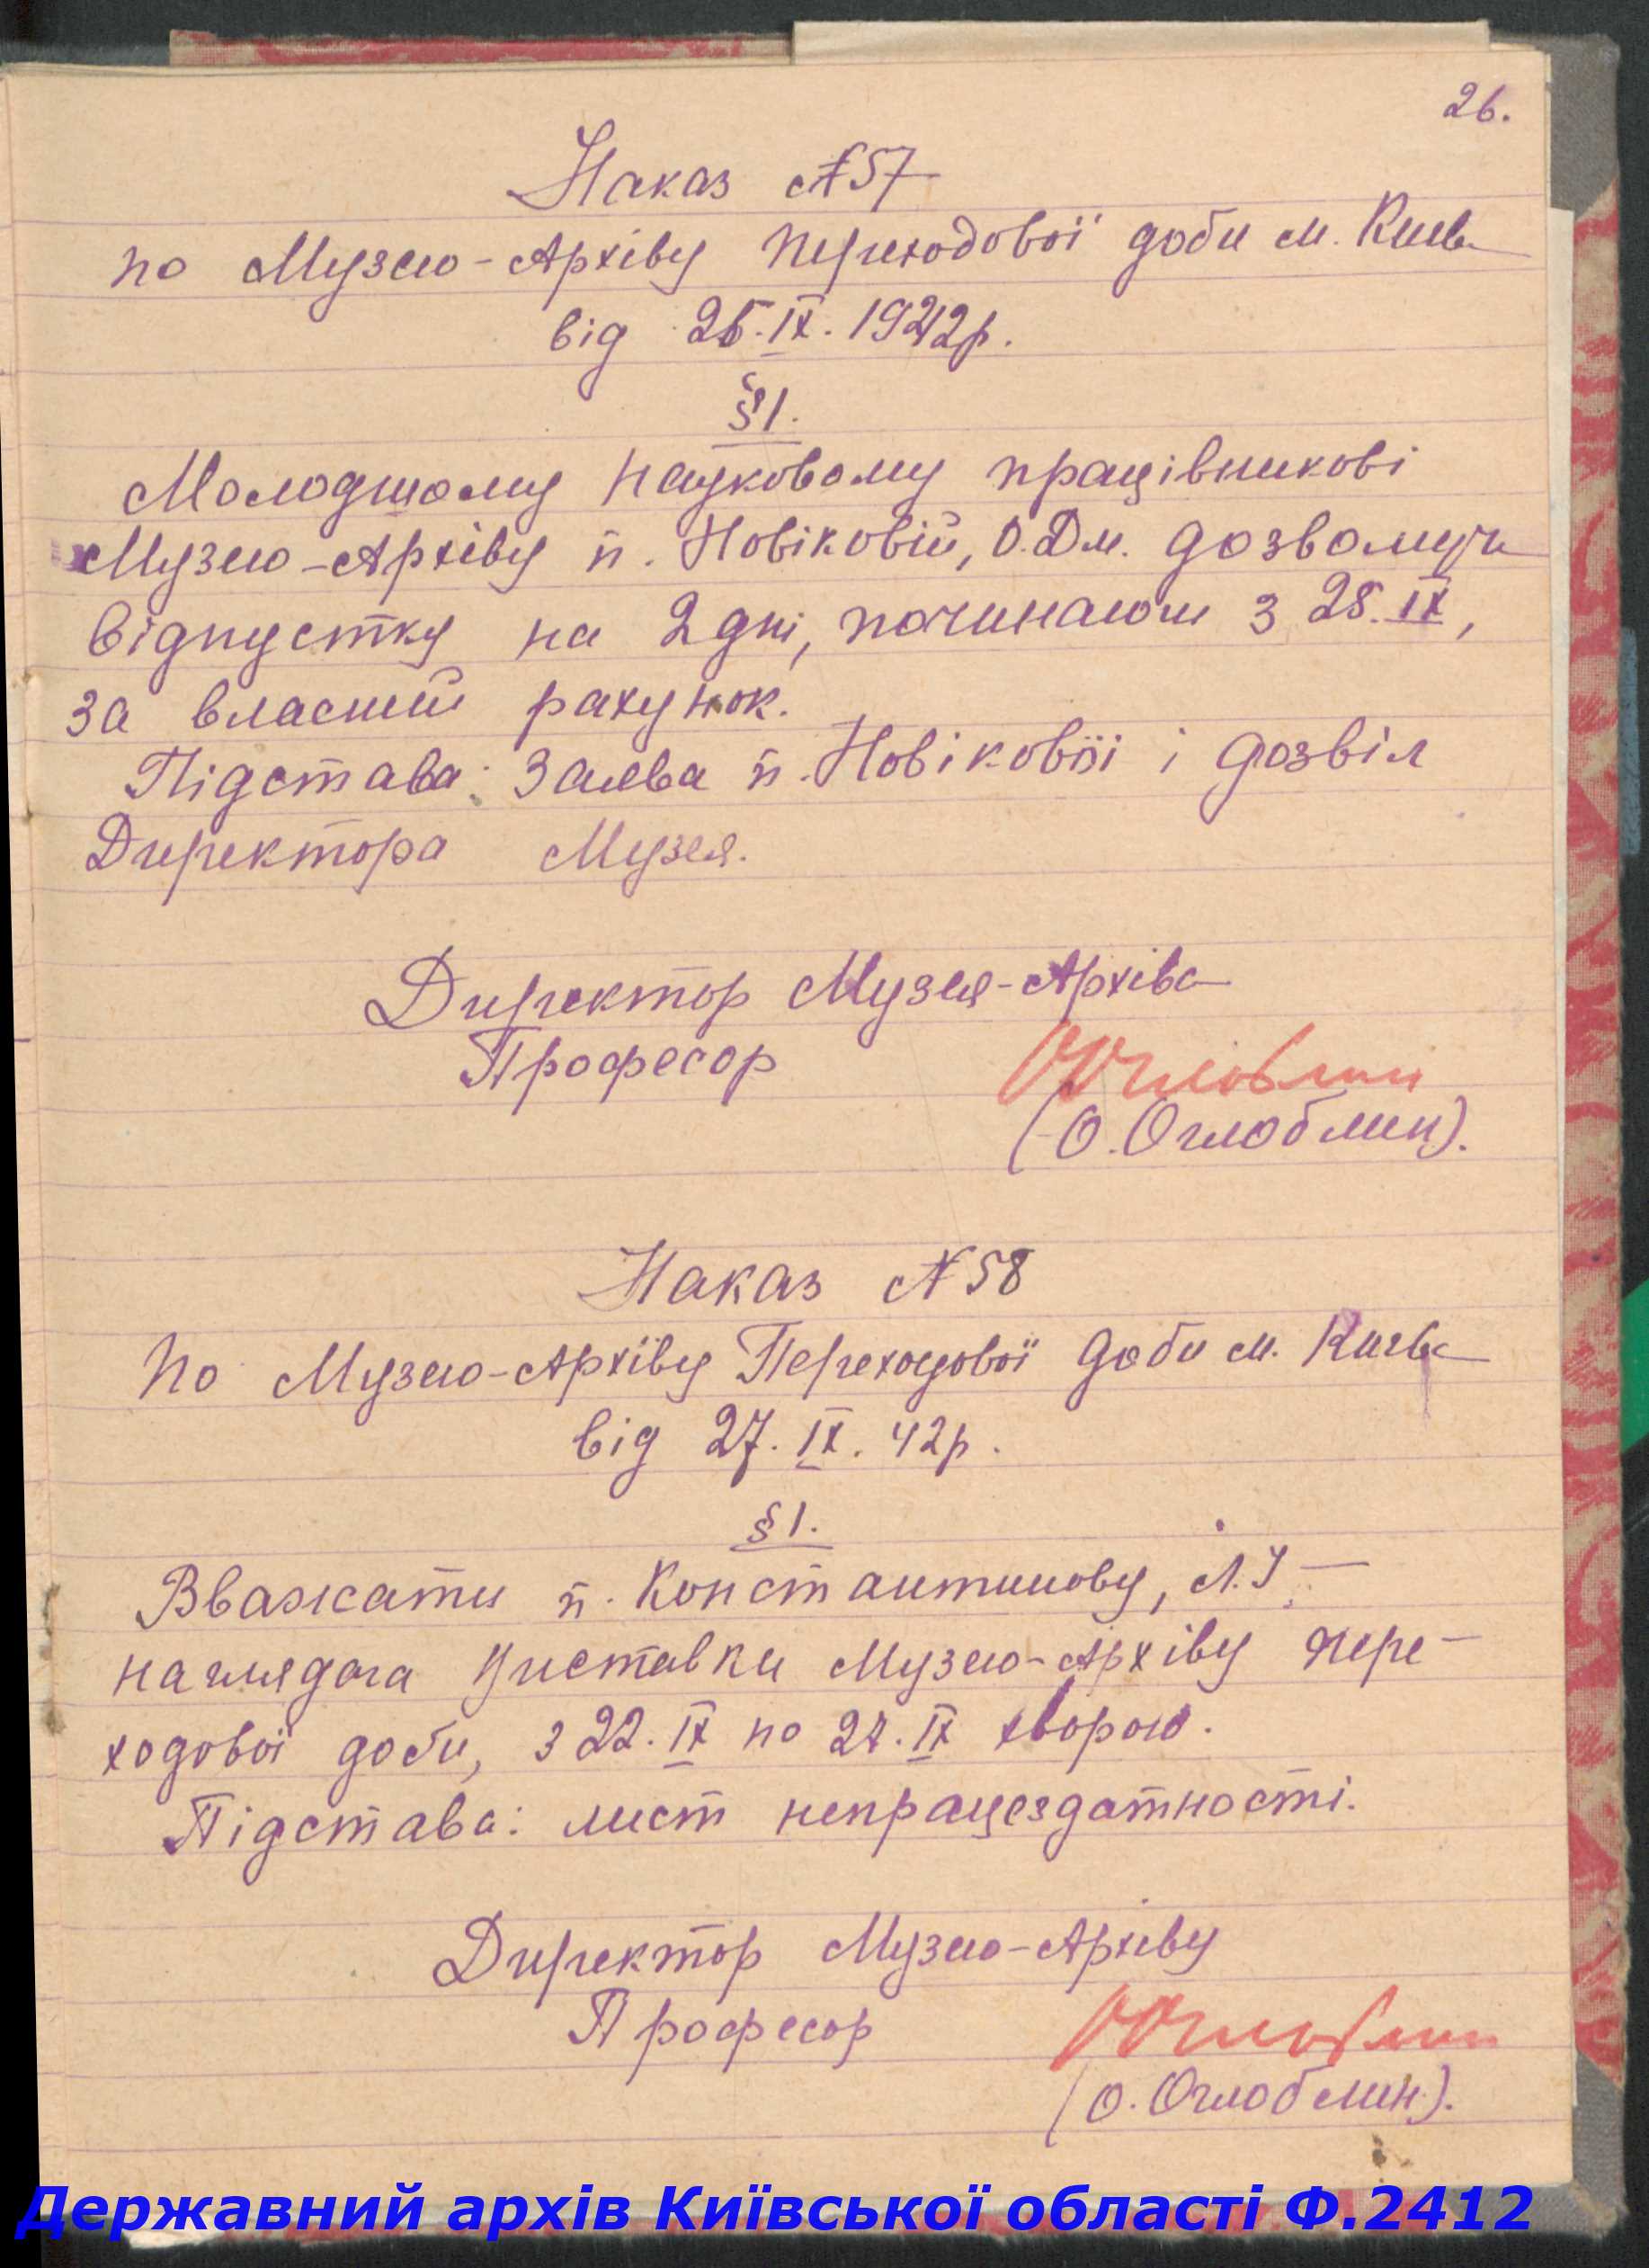 26.
Наказ №57
по Музею-Архіву Переходової доби м. Києва
від 26.IX.1942р.
§1.
Молодшому науковому працівникові
Музею-Архіву п. Новіковій, О.Дм. дозволити
відпустку на 2 дні, починаючи з 28.IX,
за власний рахунок.
Підстава: Заява п. Новікової і дозвіл
Директора Музея.
Директор Музея-Архіва
Професор
(О. Оглоблин).
Наказ №58
по Музею-Архіву Переходової доби м. Києва
від 27.IX.42р.
§1.
Вважати п. Константинову, Л.І. -
наглядача виставки Музею-Архіву пере-
ходової доби, з 22.IX по 27.IX хворою.
Підстава: лист непрацездатності.
Директор Музею-Архіву
Професор
(О. Оглоблин).
Державний архів Київської області Ф.2412